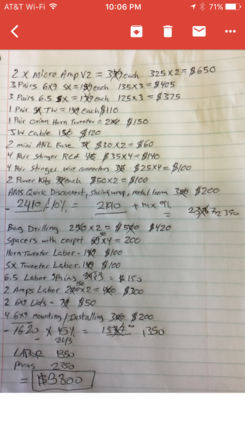 AT&T Wi-Fi
10:06 PM
71%
2 x Micro Amp V2 = each 325 x 2 = $650
3 Pairs 6x9 5x = each 135 x 3 = $405
3 Pairs 6.5 5x = each 125 x 3 = $375
1 Pair 5x TW = each $110
1 Pair Orion Horn Tweeter = $150
5W Cable $120
2 mini ANL Fuse $30 x 2 = $60
4 Pair Stinger RCA $35 x 4 = $140
4 Pair Stinger wire connectors $25 x 4 = $100
2 Power Kits each $50 x 2 = $100
Quick Disconnect, Shrink wrap, metal $200
- 2410 - 10% = + tax 9%
= 2350
Bag Drilling x 2 = $420
Spacers with carpet x 4 = 200
Horn Tweeter Labor $100
5x Tweeter Labor $100
6.5 Labor $150
2 Amps Labor x 2 = $300
2 6x9 Lids - $50
4 6x9 Mounting / Installing $200
- 1620 x 15% = 1350
- 243
LABOR 1350
Parts 2350
=